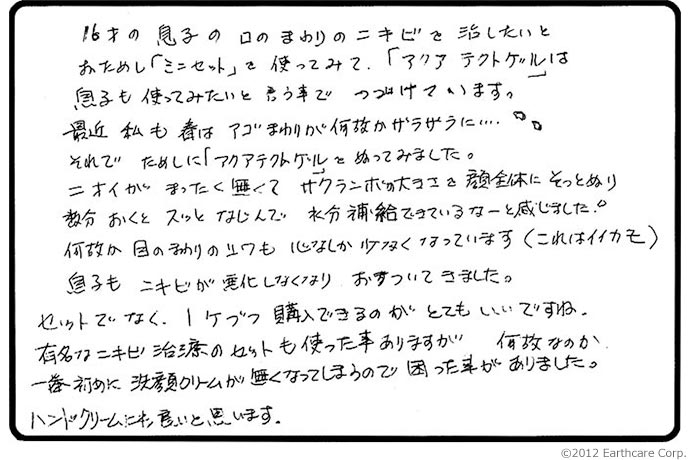 16才の息子の口のまわりのニキビを治したいと
おためし「ミニセット」を使ってみて、「アクアテクトゲル」は
息子も使ってみたいと言う事でつづけています。
最近私も春はアゴまわりが何故かザラザラに‥‥
それでためしに「アクアテクトゲル」をぬってみました。
ニオイがまったく無くてサクランボの大きさを顔全体にそっとぬり
数分おくとスッとなじんで水分補給できているなーと感じました。
何故か目のまわりのシワも心なしか少なくなっています(これはイイカモ)
息子もニキビが悪化しなくなりおちついてきました。
セットでなく、1ケづつ購入できるのがとてもいいですね。
有名なニキビ治療のセットも使った事ありますが 何故なのか
一番初めに洗顔クリームが無くなってしまうので困った事がありました。
ハンドクリームにも良いと思います。
©2012 Earthcare Corp.